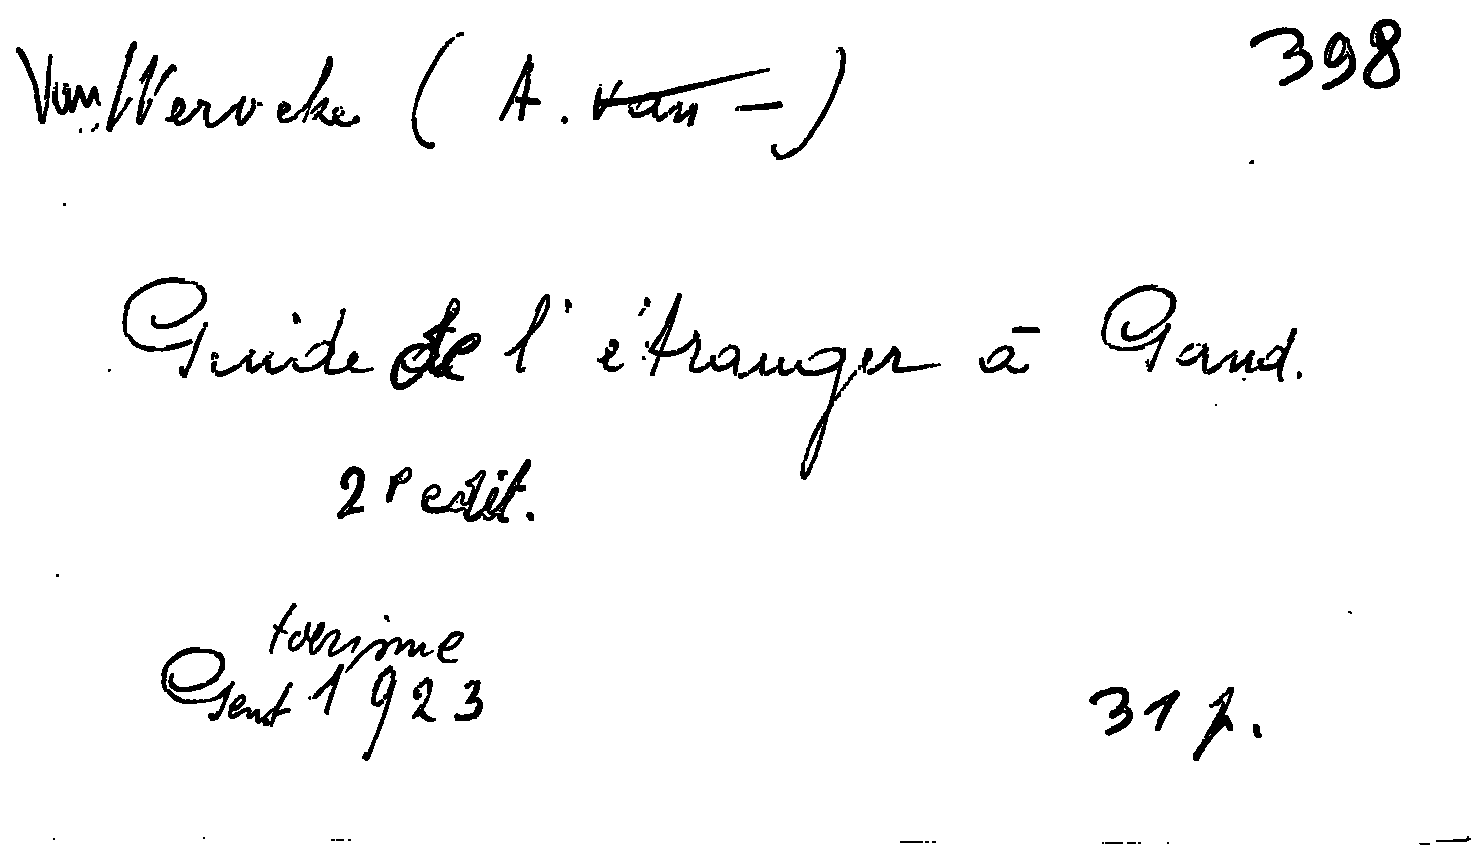 Van Werveke (A. van —) 398
Guide de l'étranger à Gand.
2e edit.
toerisme
Gent 1923 31 p.